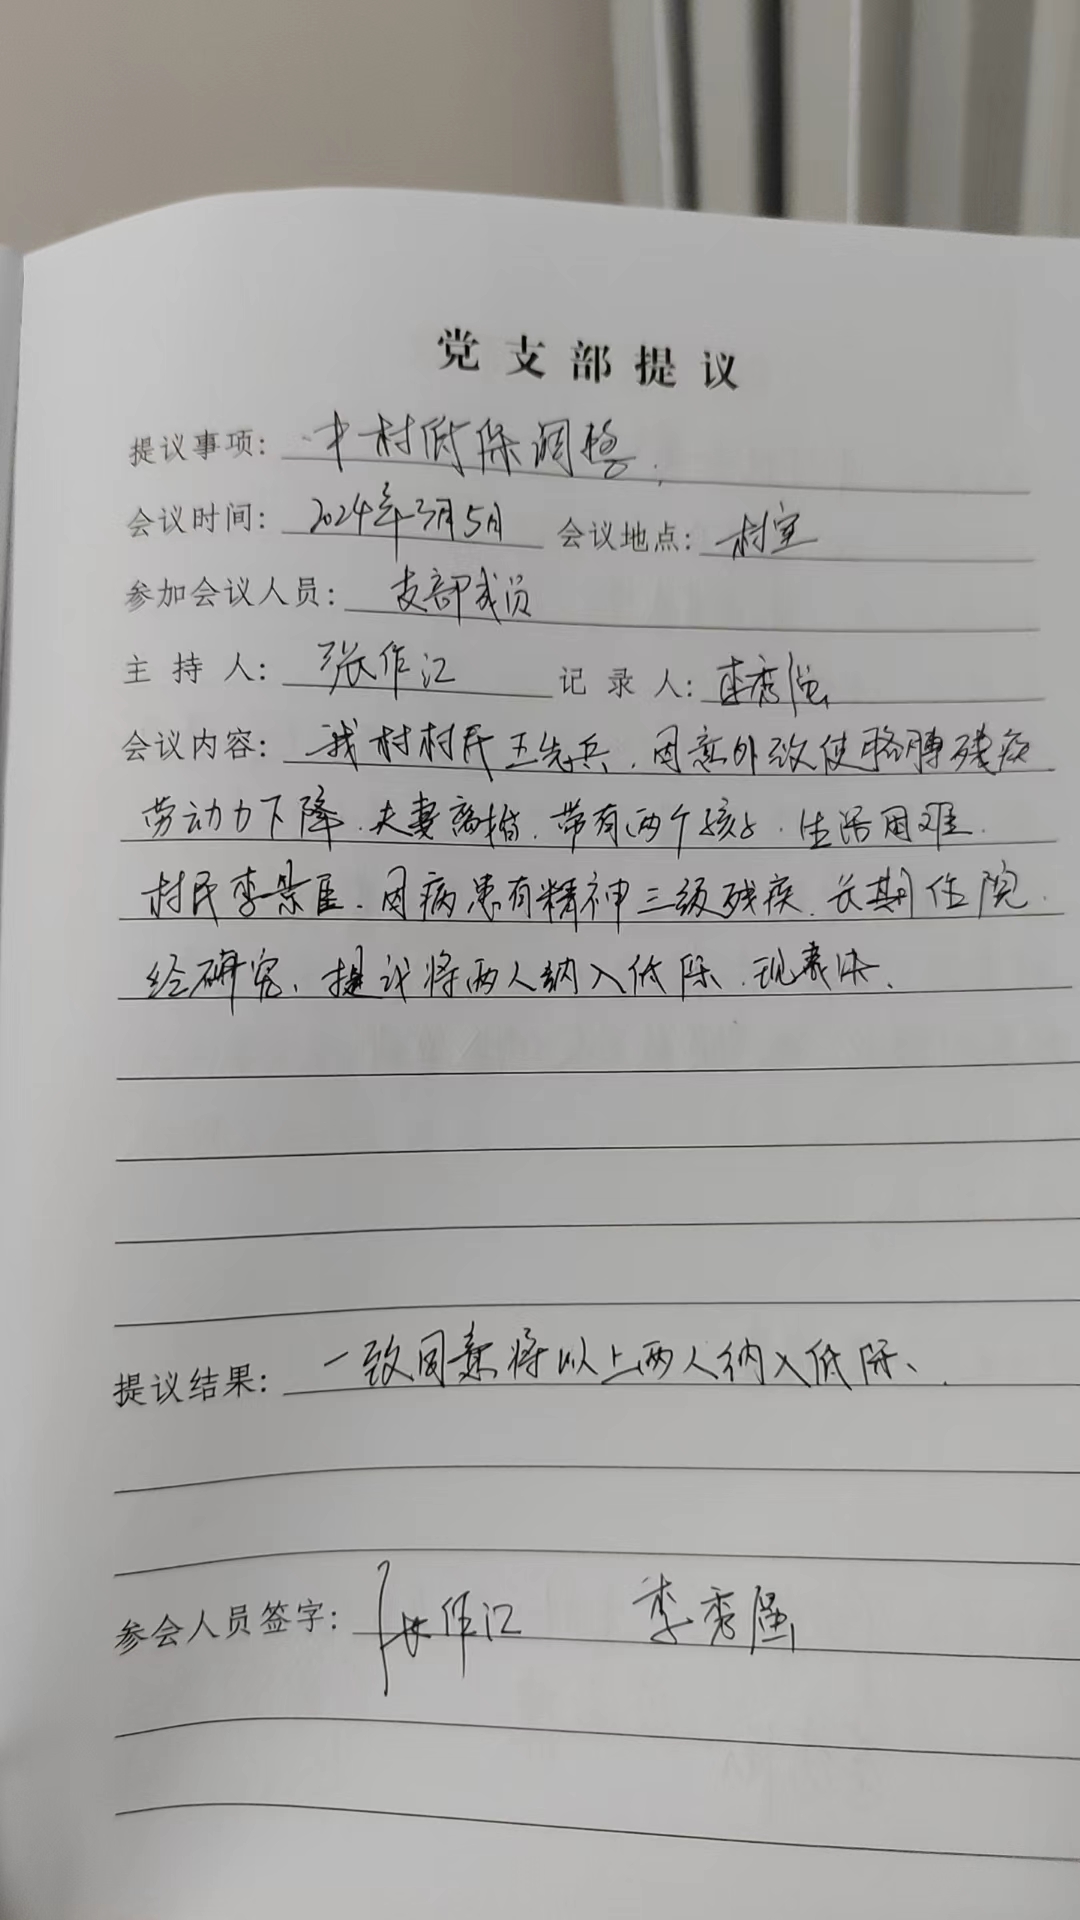 党支部提议
提议事项: 中村低保调整.
会议时间: 2024年3月5日 会议地点: 村室
参加会议人员: 支部成员
主持人: 张作江 记录人: 李秀
会议内容: 我村村民王先兵、因意外致使胳膊残疾
劳动力下降、夫妻离婚、带有两个孩子、生活困难.
村民李景臣、因病患有精神三级残疾、长期住院.
经研究、提议将两人纳入低保、现表决、
提议结果: 一致同意将以上两人纳入低保、
参会人员签字: 张作江 李秀